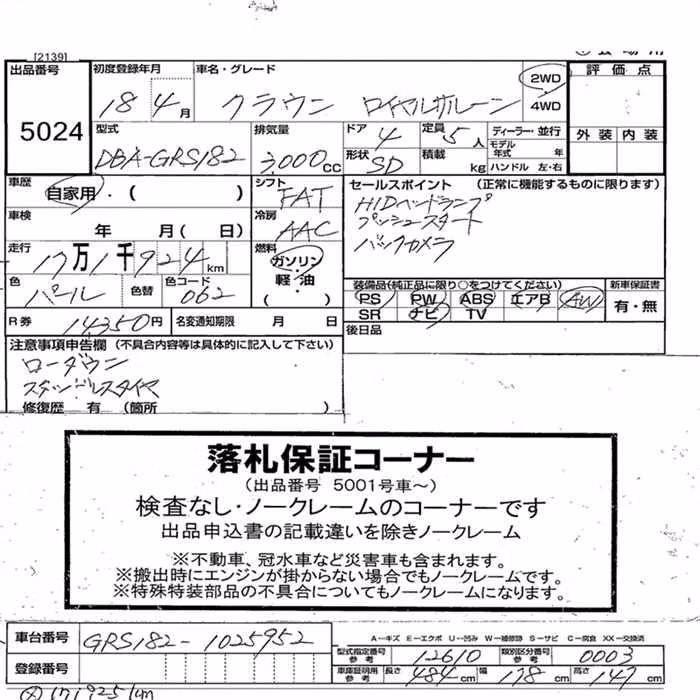 [2139]
出品番号 5024
初度登録年月 18 4月
車名・グレード クラウン ロイヤルサルーン
2WD 4WD
評価点
外装 内装
型式 DBA-GRS182
排気量 3,000CC
ドア 4
定員 5人
形状 SD
積載 kg
ディーラー・並行
モデル年式 年
ハンドル 左・右
車歴 自家用・( )
シフト FAT
セールスポイント (正常に機能するものに限ります)
HIDヘッドランプ
プッシュスタート
バックカメラ
車検 年 月( 日)
冷房 AAC
走行 17万1千924km
燃料 ガソリン・軽・油・( )
色 パール
色替
色コード 062
装備品(純正品に限り○をつけてください)
PS PW ABS エアB AW
SR ナビ TV
新車保証書 有・無
R券 14350円
名変通知期限 月 日
後日品
注意事項申告欄 (不具合内容等は具体的に記入して下さい)
ローダウン
スタッドレスタイヤ
修復歴 有 (箇所 )
落札保証コーナー
(出品番号 5001号車～)
検査なし・ノークレームのコーナーです
出品申込書の記載違いを除きノークレーム
※不動車、冠水車など災害車も含まれます。
※搬出時にエンジンが掛からない場合でもノークレームです。
※特殊特装部品の不具合についてもノークレームになります。
車台番号 GRS182-1025952
A－キズ E－エクボ U－凹み W－補修跡 S－サビ C－腐食 XX－交換済
型式指定番号 参考 12610
類別区分番号 参考 0003
登録番号
車庫証明用 参考 長さ 484cm 幅 178cm 高さ 147cm
171925km